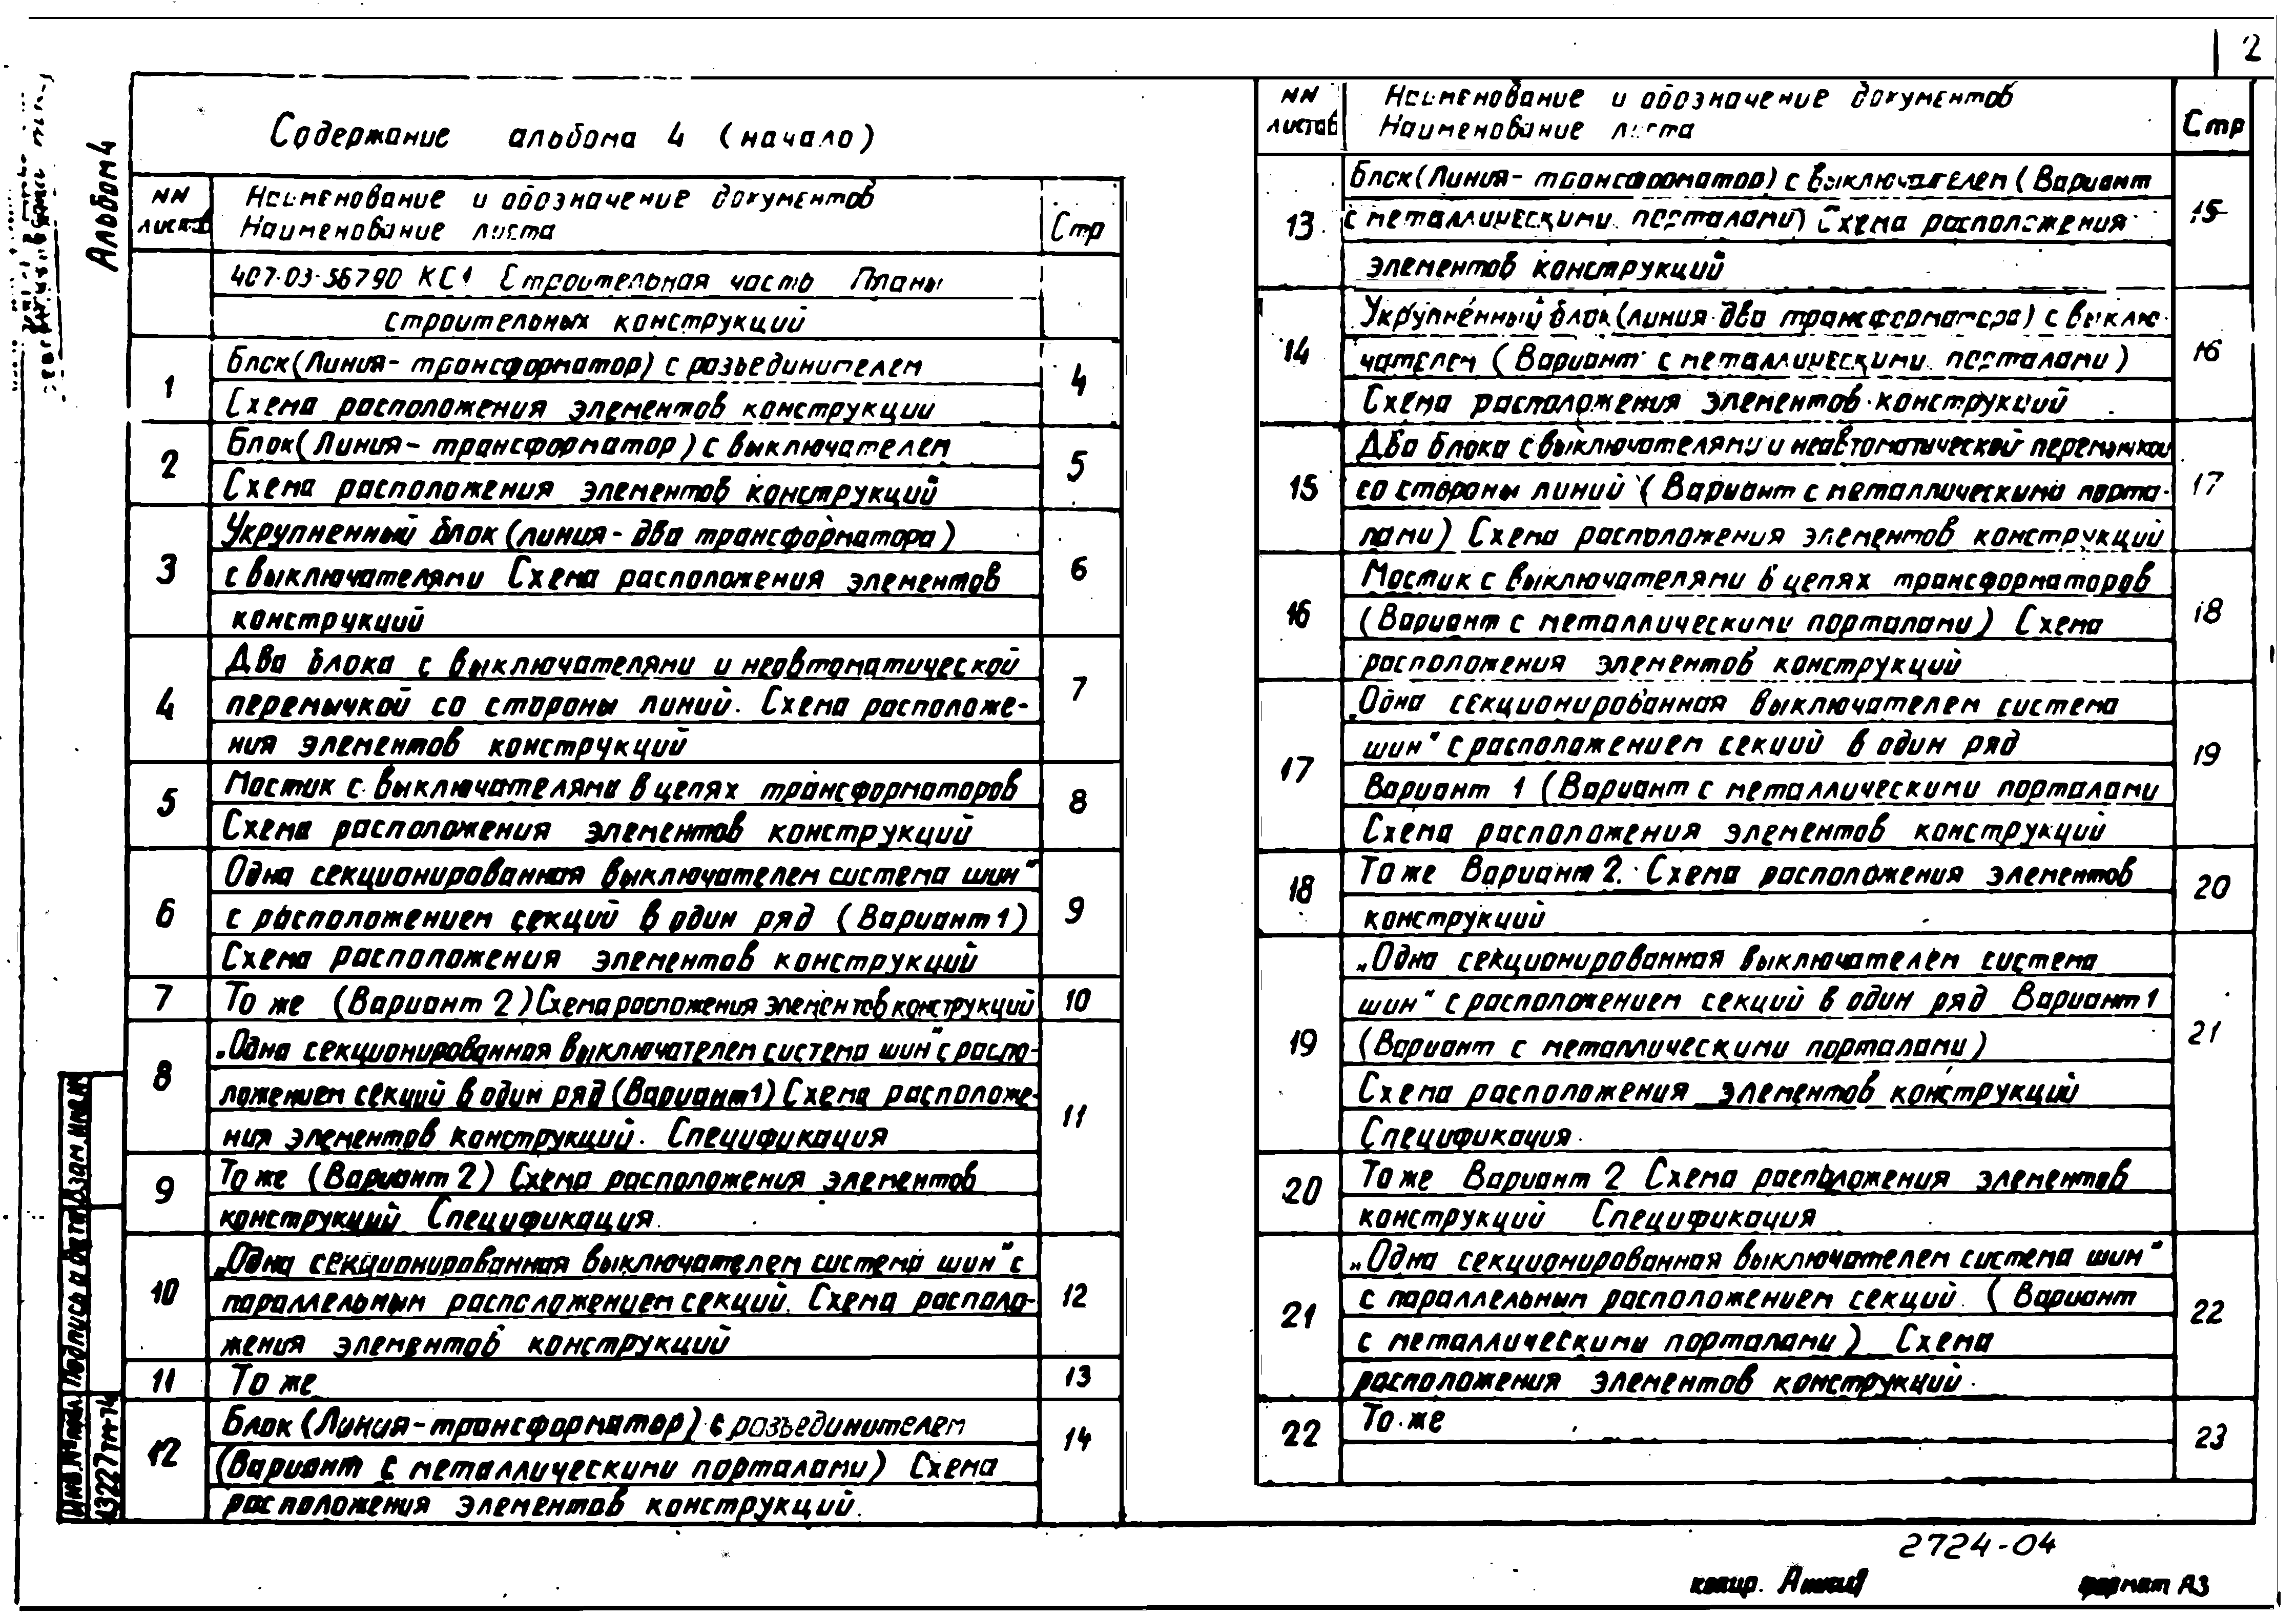 2
Альбом 4
Содержание альбома 4 (начало)
NN листов
Наименование и обозначение документов
Наименование листа
Стр
407-03-567 90 КС1 Строительная часть Планы
строительных конструкций
1
Блок (Линия - трансформатор) с разъединителем
4
Схема расположения элементов конструкции
2
Блок (Линия - трансформатор) с выключателем
5
Схема расположения элементов конструкций
3
Укрупненный блок (линия - два трансформатора)
6
с выключателями Схема расположения элементов
конструкций
4
Два блока с выключателями и неавтоматической
7
перемычкой со стороны линий. Схема расположе-
ния элементов конструкций
5
Мостик с выключателями в цепях трансформаторов
8
Схема расположения элементов конструкций
6
Одна секционированная выключателем система шин"
9
с расположением секций в один ряд (Вариант 1)
Схема расположения элементов конструкций
7
То же (Вариант 2) Схема расположения элементов конструкций
10
8
„Одна секционированная выключателем система шин" с распо-
11
ложением секций в один ряд (Вариант 1) Схема расположе-
ния элементов конструкций. Спецификация
9
То же (Вариант 2) Схема расположения элементов
конструкций Спецификация
10
„Одна секционированная выключателем система шин" с
12
параллельным расположением секций. Схема располо-
жения элементов конструкций
11
То же
13
12
Блок (Линия - трансформатор) с разъединителем
14
(Вариант с металлическими порталами) Схема
расположения элементов конструкций.
NN листов
Наименование и обозначение документов
Наименование листа
Стр
13
Блок (Линия - трансформатор) с выключателем (Вариант
15
с металлическими порталами) Схема расположения
элементов конструкций
14
Укрупненный блок (линия два трансформатора) с выклю-
16
чателем (Вариант с металлическими порталами)
Схема расположения элементов конструкций
15
Два блока с выключателями и неавтоматической перемычкой
17
со стороны линий (Вариант с металлическими порта-
лами) Схема расположения элементов конструкций
16
Мостик с выключателями в цепях трансформаторов
18
(Вариант с металлическими порталами) Схема
расположения элементов конструкций
17
„Одна секционированная выключателем система
19
шин" с расположением секций в один ряд
Вариант 1 (Вариант с металлическими порталами
Схема расположения элементов конструкций
18
То же Вариант 2. Схема расположения элементов
20
конструкций
19
„Одна секционированная выключателем система
21
шин" с расположением секций в один ряд Вариант 1
(Вариант с металлическими порталами)
Схема расположения элементов конструкций
Спецификация
20
То же Вариант 2 Схема расположения элементов
конструкций Спецификация
21
„Одна секционированная выключателем система шин"
22
с параллельным расположением секций. (Вариант
с металлическими порталами) Схема
расположения элементов конструкций.
22
То же
23
Инв.№ подл. Подпись и дата Взам.инв.№
13227тм-т4
2724-04
копир.
формат А3